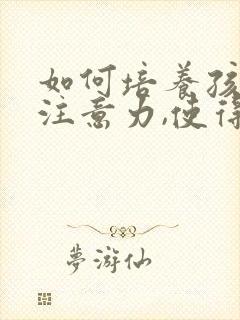 如何培養孩
注意力,使得
夢游仙